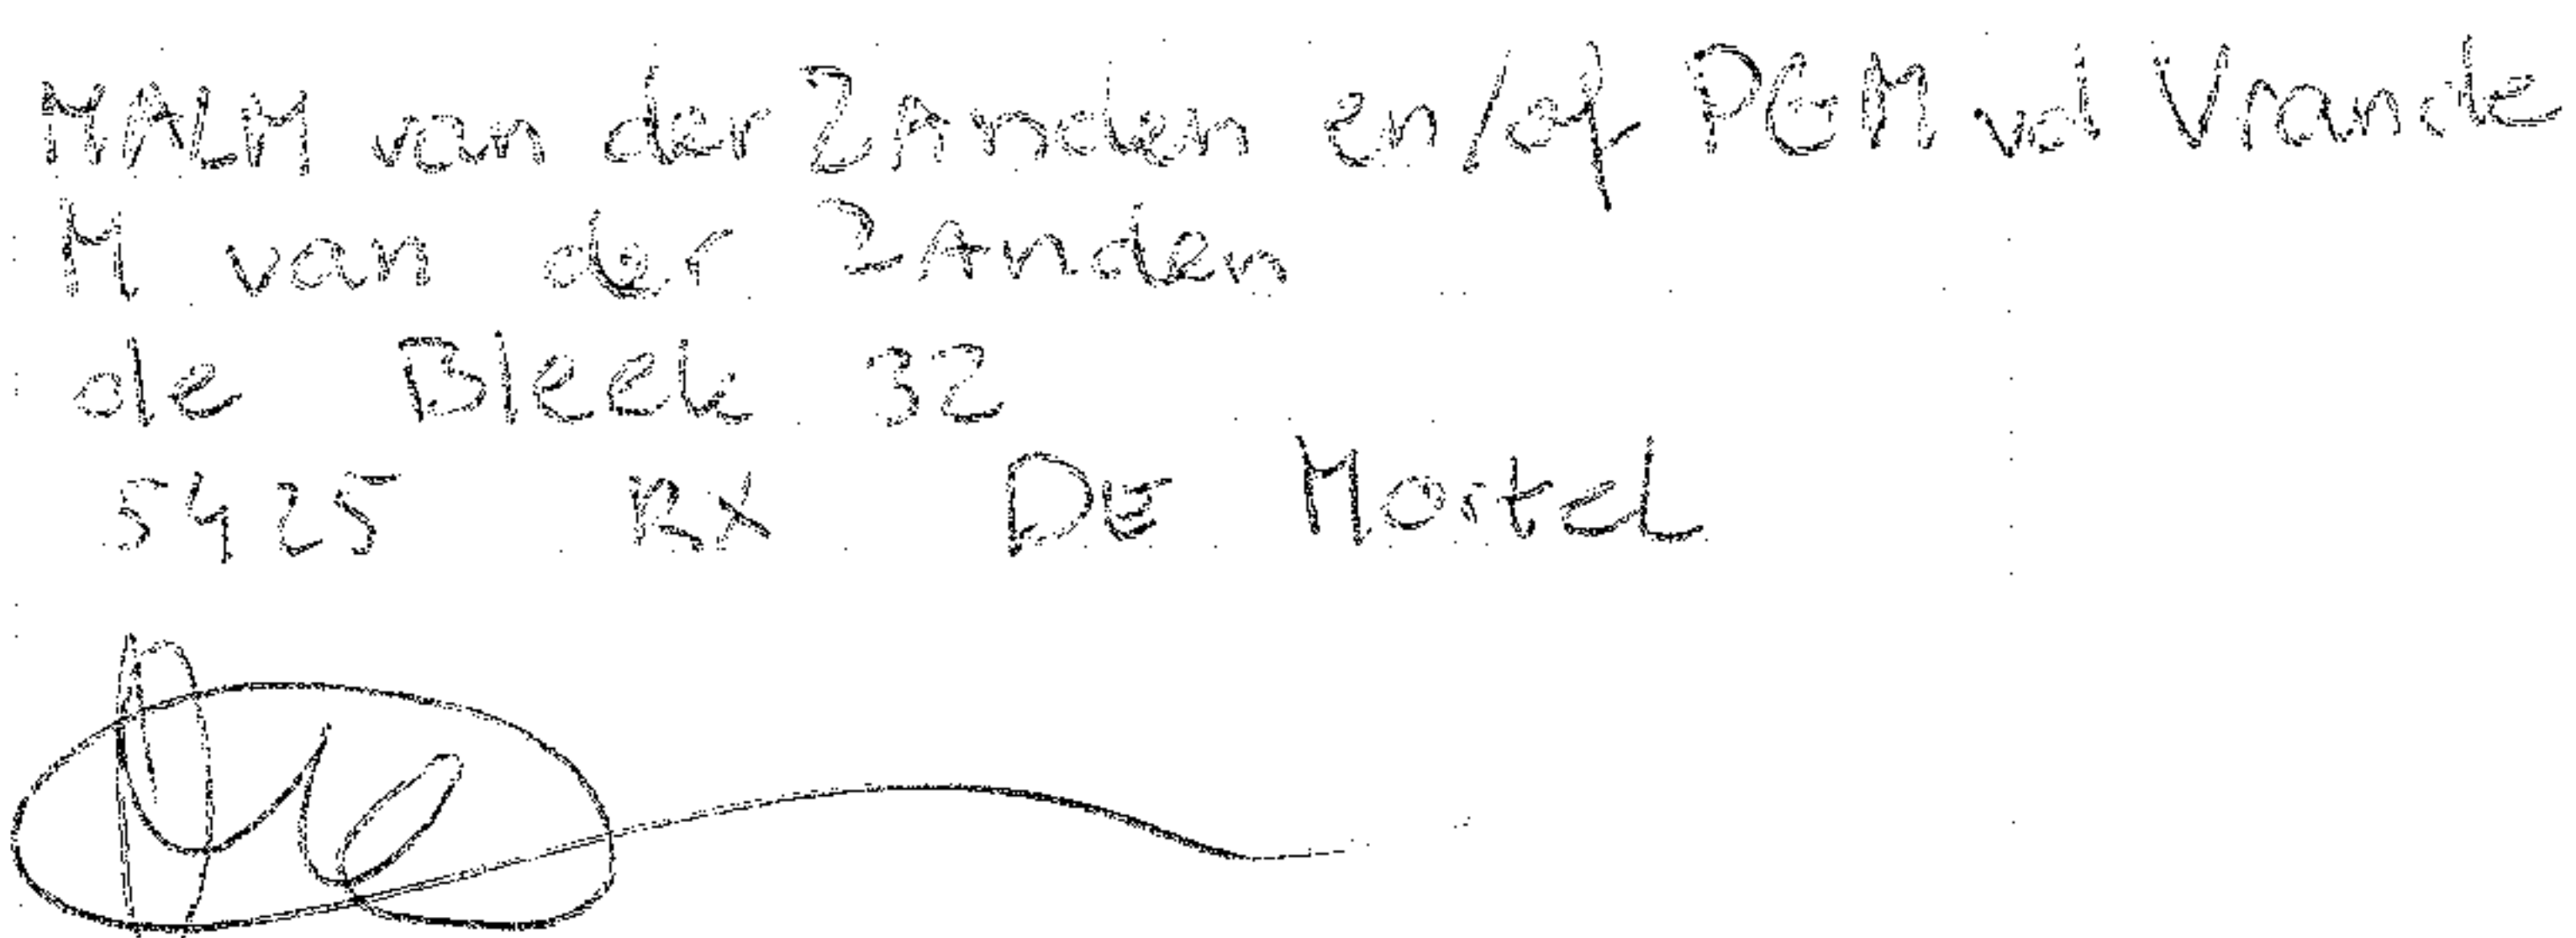 MALM van der ZAnden en/of PGM vd Vrande
M van der ZAnden
de Bleek 32
5425 RX DE Mortel